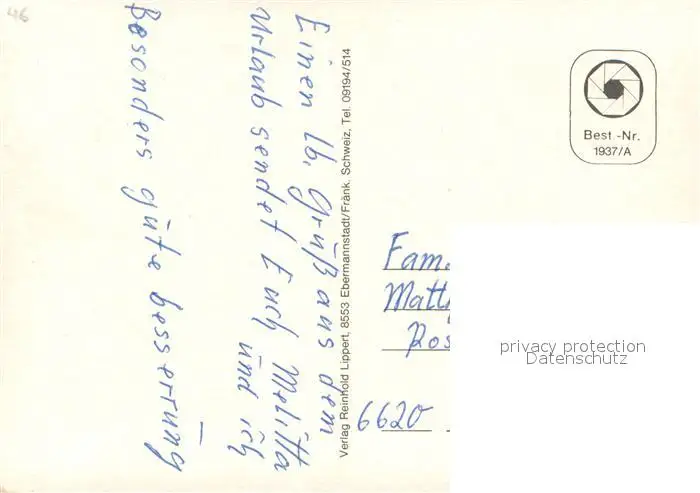 46
Einen lb. Grüß aus dem
Urlaub sendet Euch Melitta
ünd ich
Besonders güte besserüng
Verlag Reinhold Lippert, 8553 Ebermannstadt/Fränk. Schweiz, Tel. 09194/514
Best.-Nr.
1937/A
Fam.
Matt
Ros
6620
privacy protection
Datenschutz